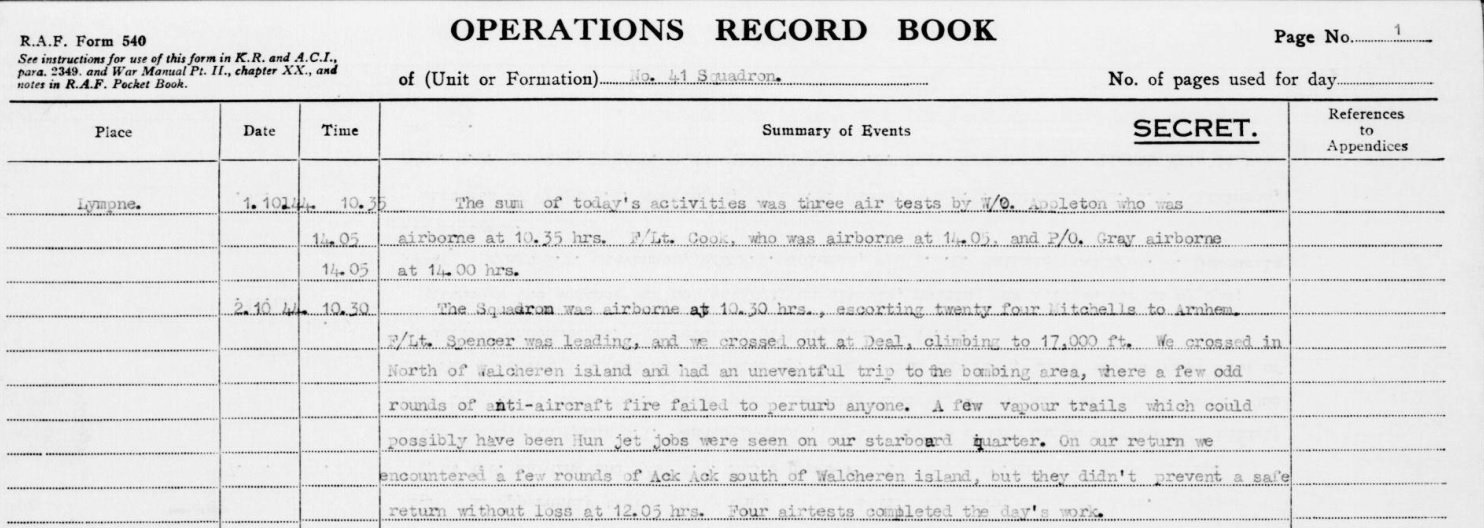 OPERATIONS RECORD BOOK
R.A.F. Form 540
See instructions for use of this form in K.R. and A.C.I.,
para. 2349. and War Manual Pt. II., chapter XX., and
notes in R.A.F. Pocket Book.
Page No. 1
of (Unit or Formation) No. 41 Squadron.
No. of pages used for day
Place Date Time Summary of Events SECRET. References to Appendices
Lympne. 1.10.44. 10.35 The sum of today's activities was three air tests by W/O. Appleton who was
14.05 airborne at 10.35 hrs. F/Lt. Cook, who was airborne at 14.05, and P/O. Gray airborne
14.05 at 14.00 hrs.
2.10 44. 10.30 The Squadron was airborne at 10.30 hrs., escorting twenty four Mitchells to Arnhem.
F/Lt. Spencer was leading, and we crossed out at Deal, climbing to 17,000 ft. We crossed in
North of Walcheren island and had an uneventful trip to the bombing area, where a few odd
rounds of anti-aircraft fire failed to perturb anyone. A few vapour trails which could
possibly have been Hun jet jobs were seen on our starboard quarter. On our return we
encountered a few rounds of Ack Ack south of Walcheren island, but they didn't prevent a safe
return without loss at 12.05 hrs. Four airtests completed the day's work.